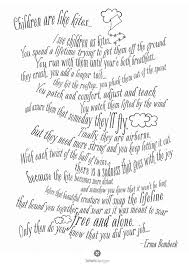 Children are like kites...
I see children as kites...
You spend a lifetime trying to get them off the ground.
You run with them until you're both breathless...
they crash, you add a longer tail...
they hit the rooftop... you pluck them out of the spout.
You patch and comfort, adjust and teach
You watch them lifted by the wind
and assure them that someday they'll fly.
Finally they are airborne,
but they need more string and you keep letting it out.
With each twist of the ball of twine,
there is a sadness that goes with the joy
because the kite becomes more distant
and somehow you know that it won't be long
before that beautiful creature will snap the lifeline
that bound you together and soar as it was meant to soar
free and alone.
Only then do you know that you did your job...
- Erma Bombeck